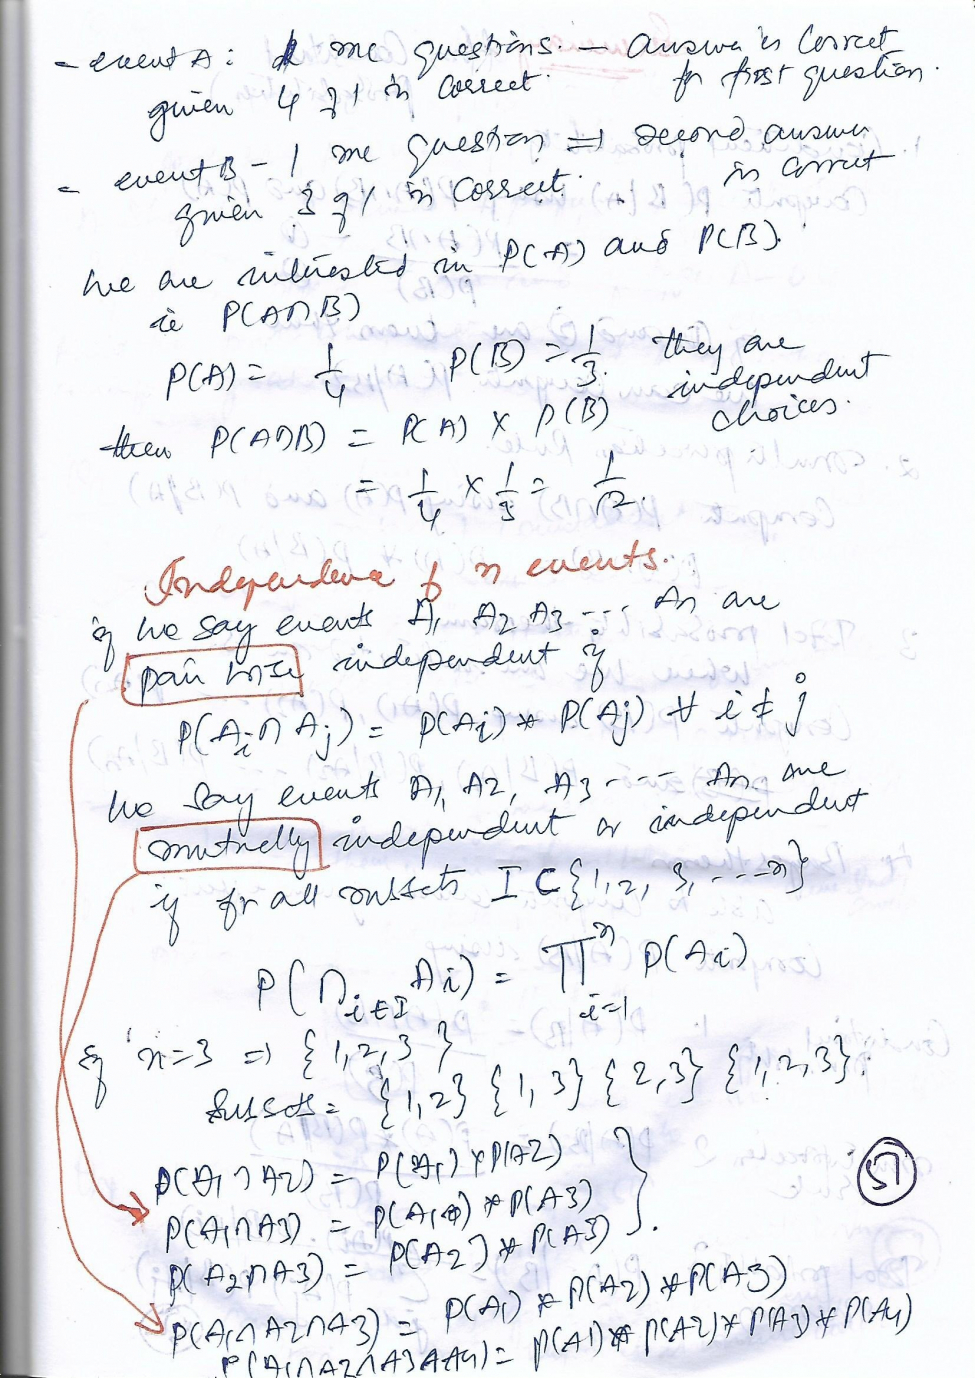 - event A: 1 mc questions. — answer is correct
given 4 of 1 is correct. for first question.
- event B - 1 mc question => second answer
given 3 of 1 is correct. is correct
We are interested in P(A) and P(B).
ie P(A∩B)
P(A) = 1/4 P(B) = 1/3. they are
independent
choices.
then P(A∩B) = P(A) × P(B)
= 1/4 × 1/3 = 1/12.
Independence of n events.
if we say events A1 A2 A3 --- An are
pair wise independent if
P(Ai ∩ Aj) = P(Ai) * P(Aj) ∀ i ≠ j
We say events A1, A2, A3 --- An are
mutually independent or independent
if for all subsets I ⊂ {1, 2, 3, ---n}
P(∩i∈I Ai) = ∏ⁿi=1 P(Ai)
if n=3 => {1,2,3}
subsets = {1,2} {1,3} {2,3} {1,2,3}.
P(A1∩A2) = P(A1) × P(A2)
P(A1∩A3) = P(A1) * P(A3)
P(A2∩A3) = P(A2) * P(A3)
P(A1∩A2∩A3) = P(A1) * P(A2) * P(A3)
P(A1∩A2∩A3∩A4) = P(A1) * P(A2) * P(A3) * P(A4)
57